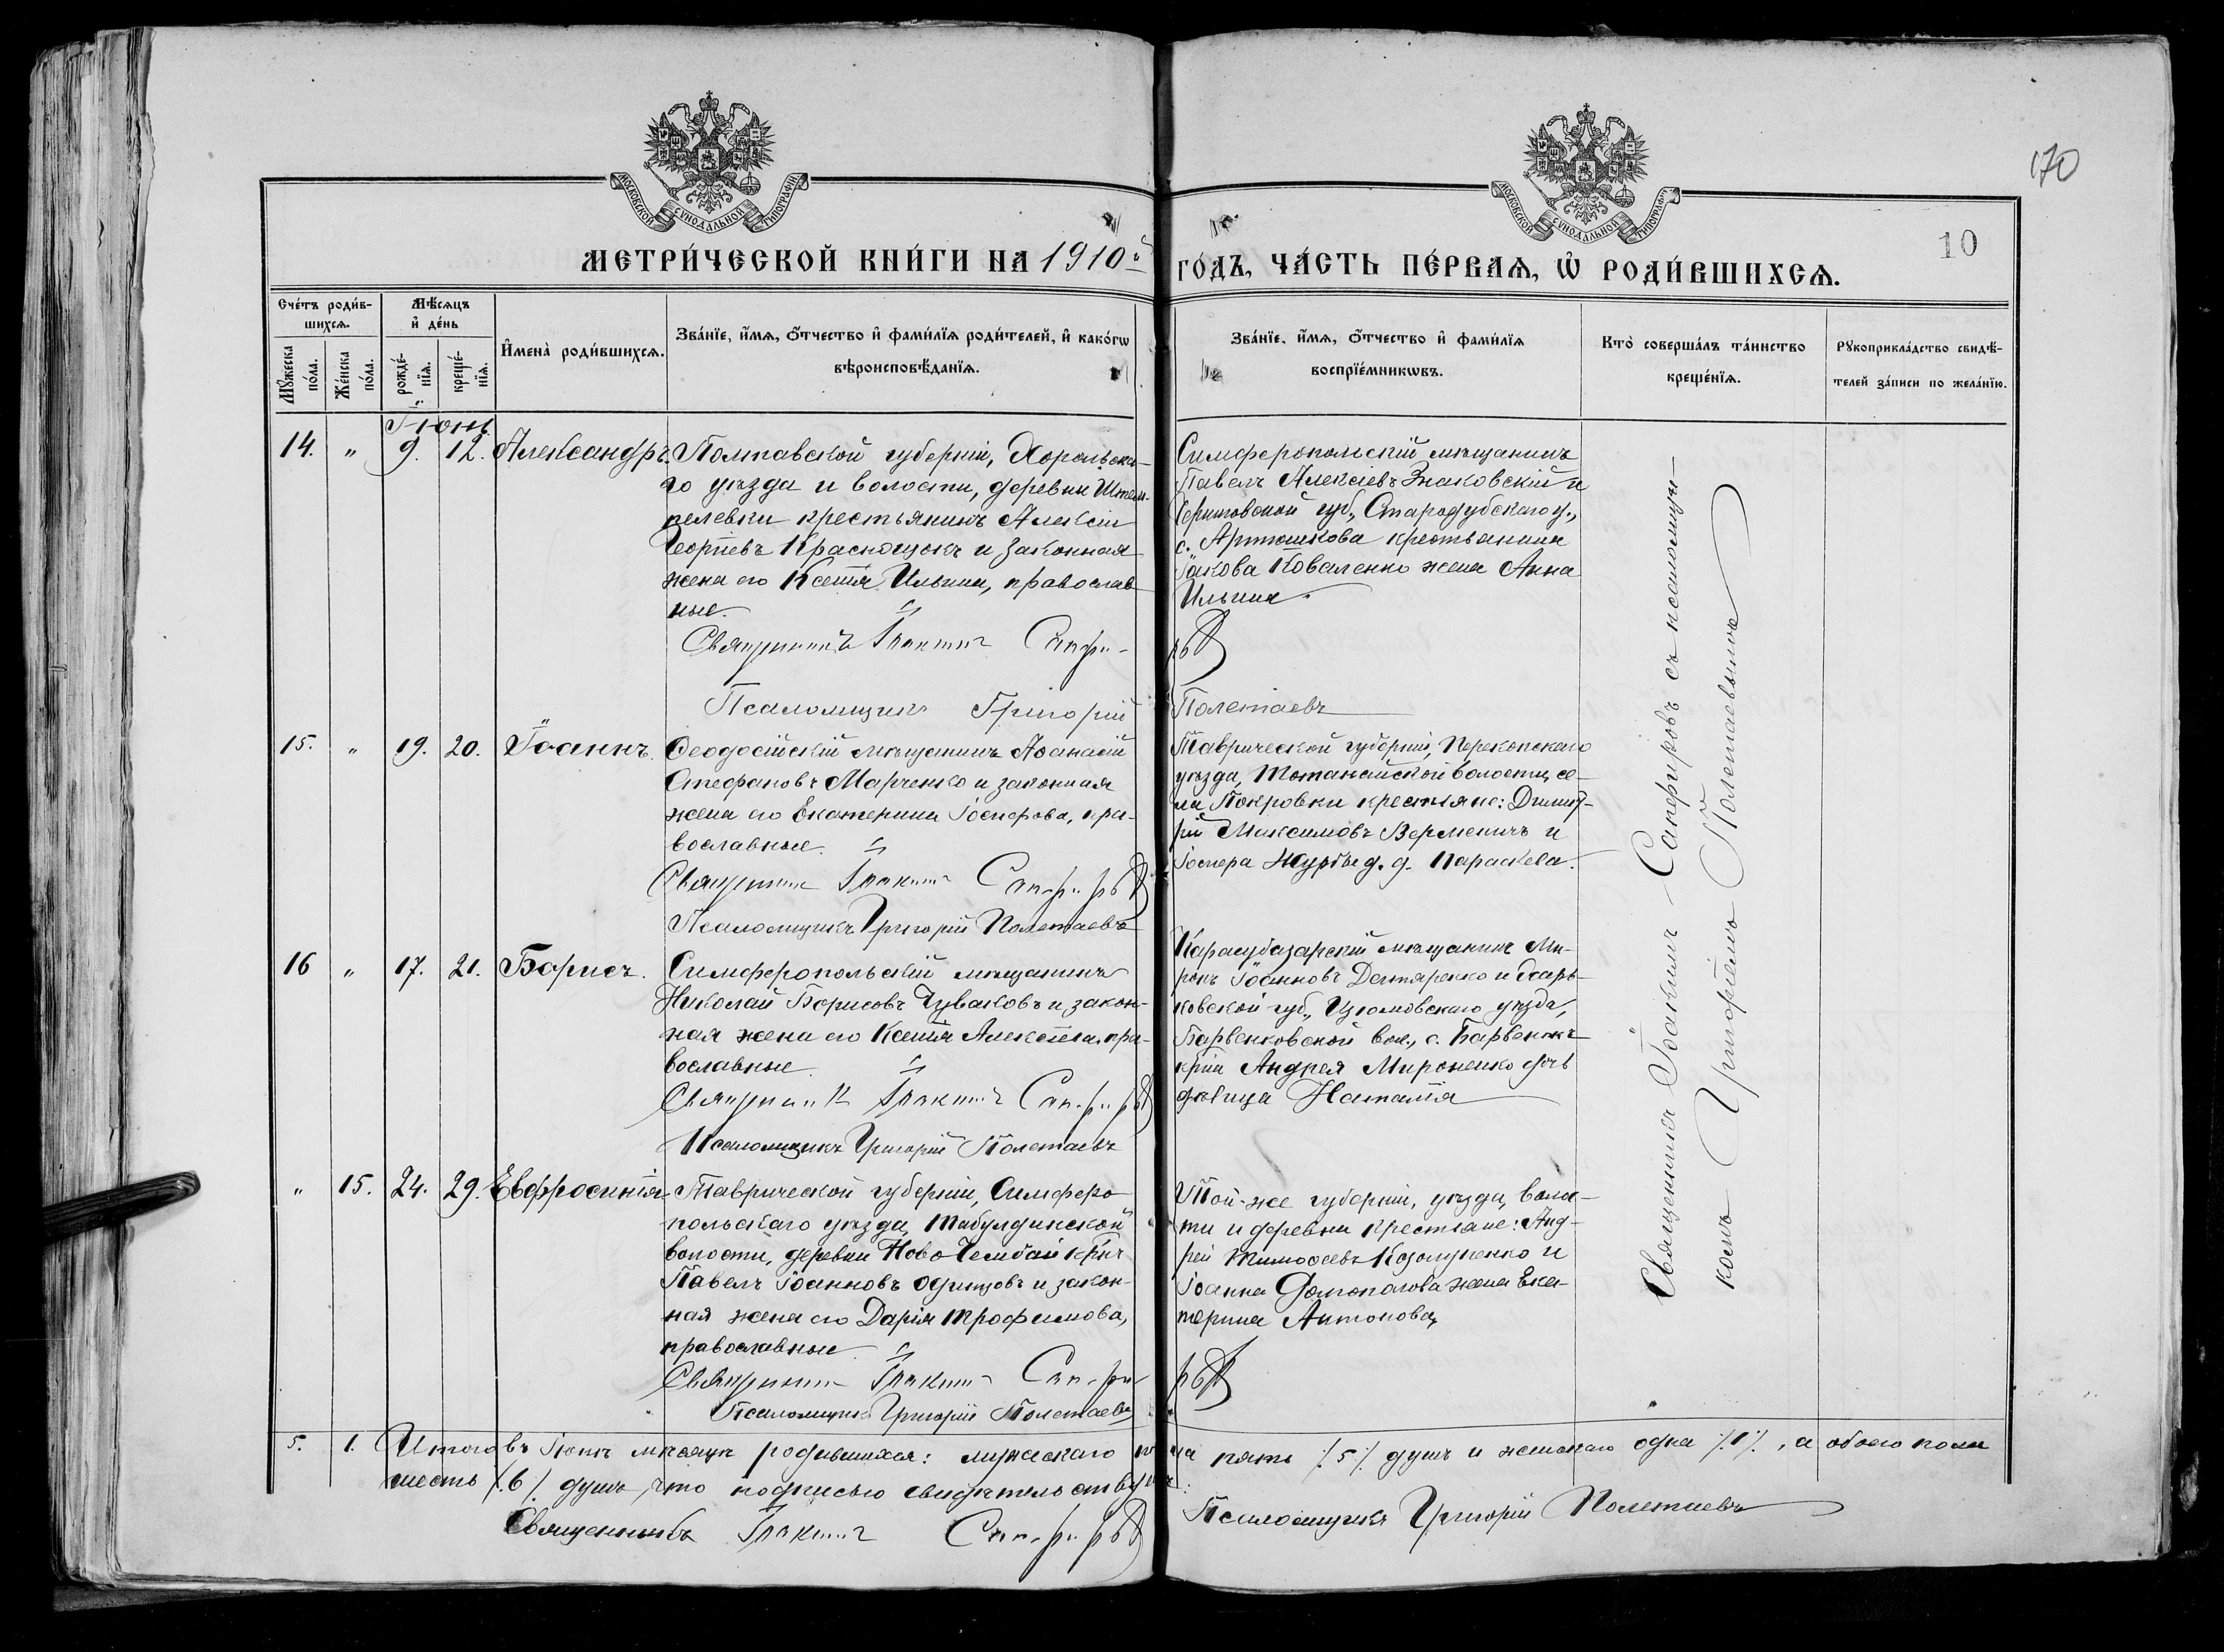 170
10
МОСКОВСКОЙ СѴНОДАЛЬНОЙ ТИПОГРАФІИ
МОСКОВСКОЙ СѴНОДАЛЬНОЙ ТИПОГРАФІИ
МЕТРИ́ЧЕСКОЙ КНИ́ГИ НА 1910й
ГО́ДЪ, ЧА́СТЬ ПЕ́РВАѦ, Ѡ҆ РОДИ́ВШИХСѦ.
Сче́тъ роди́в-
шихсѧ.
Мꙋ́жеска по́ла.
Же́нска по́ла.
Мѣ́сѧцъ
и҆ де́нь
рожде́-
нїѧ.
креще́-
нїѧ.
И҆мена̀ роди́вшихсѧ.
Зва́нїе, и҆́мѧ, ѻ҆́тчество и҆ фами́лїѧ роди́телей, и҆ како́гѡ
вѣроисповѣ́данїѧ.
Зва́нїе, и҆́мѧ, ѻ҆́тчество и҆ фами́лїѧ
воспрїе́мникѡвъ.
Кто̀ соверша́лъ та́инство
креще́нїѧ.
Рꙋкоприкла́дство свидѣ́-
телей за́писи по жела́нїю.
Іюнь
14. " 9. 12. Александръ.
Полтавской губерніи, Хорольска-
го уѣзда и волости, деревни Штем-
пелевки крестьянинъ Алексій
Георгіевъ Краснощокъ и законная
жена его Ксенія Ильина, православ
ные.
Священникъ Іоакимъ Сапфи-
ровъ
Псаломщикъ Григорій
Полетаевъ
Симферопольскій мѣщанинъ
Павелъ Алексіевъ Знаковскій и
Черниговской губ., Стародубскаго у.,
с. Артюшкова крестьянина
Іакова Коваленко жена Анна
Ильина.
15. " 19. 20. Іоаннъ.
Ѳеодосійскій мѣщанинъ Аѳанасій
Стефановъ Марченко и законная
жена его Екатерина Іосифова, пра-
вославные.
Священникъ Іоакимъ Сапфировъ
Псаломщикъ Григорій Полетаевъ
Таврической губерніи, Перекопскаго
уѣзда, Тотанайской волости, се-
ла Покровки крестьяне: Димит-
рій Максимовъ Верменичъ и
Журбы д. д. Параскева.
16 " 17. 21. Борисъ.
Симферопольскій мѣщанинъ
Николай Борисовъ Чуваковъ и закон-
ная жена его Ксенія Алексѣева, пра-
вославные.
Священникъ Іоакимъ Сапфировъ
Псаломщикъ Григорій Полетаевъ
Карасубазарскій мѣщанинъ Ми-
ронъ Іоанновъ Дегтяренко и Харь-
ковской губ., Изюмовскаго уѣзда,
Барвенковской вол., с. Барвенокъ
кр-на Андрея Мироненко дочь
дѣвица Наталія
" 15. 24. 29. Евфросинія
Таврической губерніи, Симферо-
польскаго уѣзда, Табулдинской
волости, деревни Ново-Чембай кр-нъ
Павелъ Іоанновъ Одинцовъ и закон-
ная жена его Дарія Трофимова,
православные.
Священникъ Іоакимъ Сапфи-
ровъ
Псаломщикъ Григорій Полетаевъ
Той-же губерніи, уѣзда, волос-
ти и деревни крестьяне: Анд-
рей Тимоѳеевъ Козолупенко и
Іоанна Долгополова жена Ека-
терина Антонова,
Священникъ Іоакимъ Сапфировъ съ псаломщи-
комъ Григоріемъ Полетаевымъ
5. 1. Итого въ Іюнѣ мѣсяцѣ родившихся: мужескаго пола пять /.5/. душъ и женскаго одна /.1/., а обоего пола
шесть /.6/. душъ, что подписью свидѣтельствуемъ:
Священникъ Іоакимъ Сапфировъ
Псаломщикъ Григорій Полетаевъ